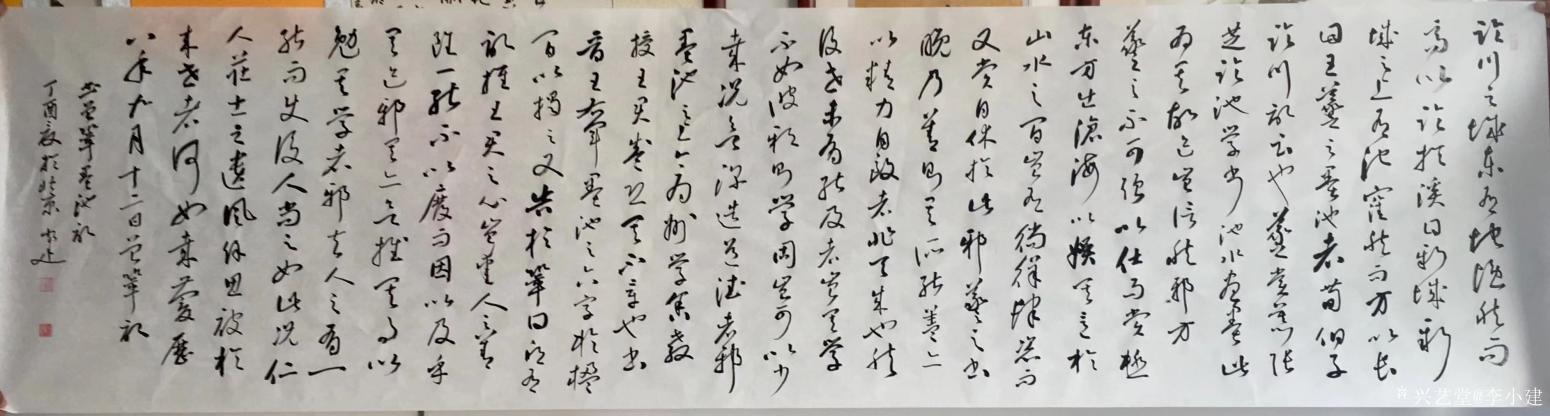 临川之城东有地隐然而
高以临於溪曰新城新
城之上有池窪然而方以长
曰王羲之之墨池者荀伯子
临川记云也羲之尝慕张
芝临池学书池水尽黑此
为其故迹岂信然邪方
羲之之不可强以仕而尝极
东方出滄海以娱其意於
山水之间岂有徜徉肆恣而
又尝自休於此邪羲之之书
晚乃善则其所能盖亦
以精力自致者非天成也然
後世未有能及者岂其学
不如彼邪则学固岂可以少
哉况欲深造道德者邪
墨池之上今为州学舍教
授王君盛恐其不章也书
晋王右军墨池之六字於楹
间以揭之又告於鞏曰愿有
记推王君之心岂爱人之善
雖一能不以廢而因以及乎
其迹邪其亦欲推其事以
勉其学者邪夫人之有一
能而使後人尚之如此况仁
人莊士之遺風餘思被於
来世者何如哉慶歷
八年九月十二日曾鞏记
书曾鞏墨池记
丁酉夏於北京 小建
兴艺堂@李小建